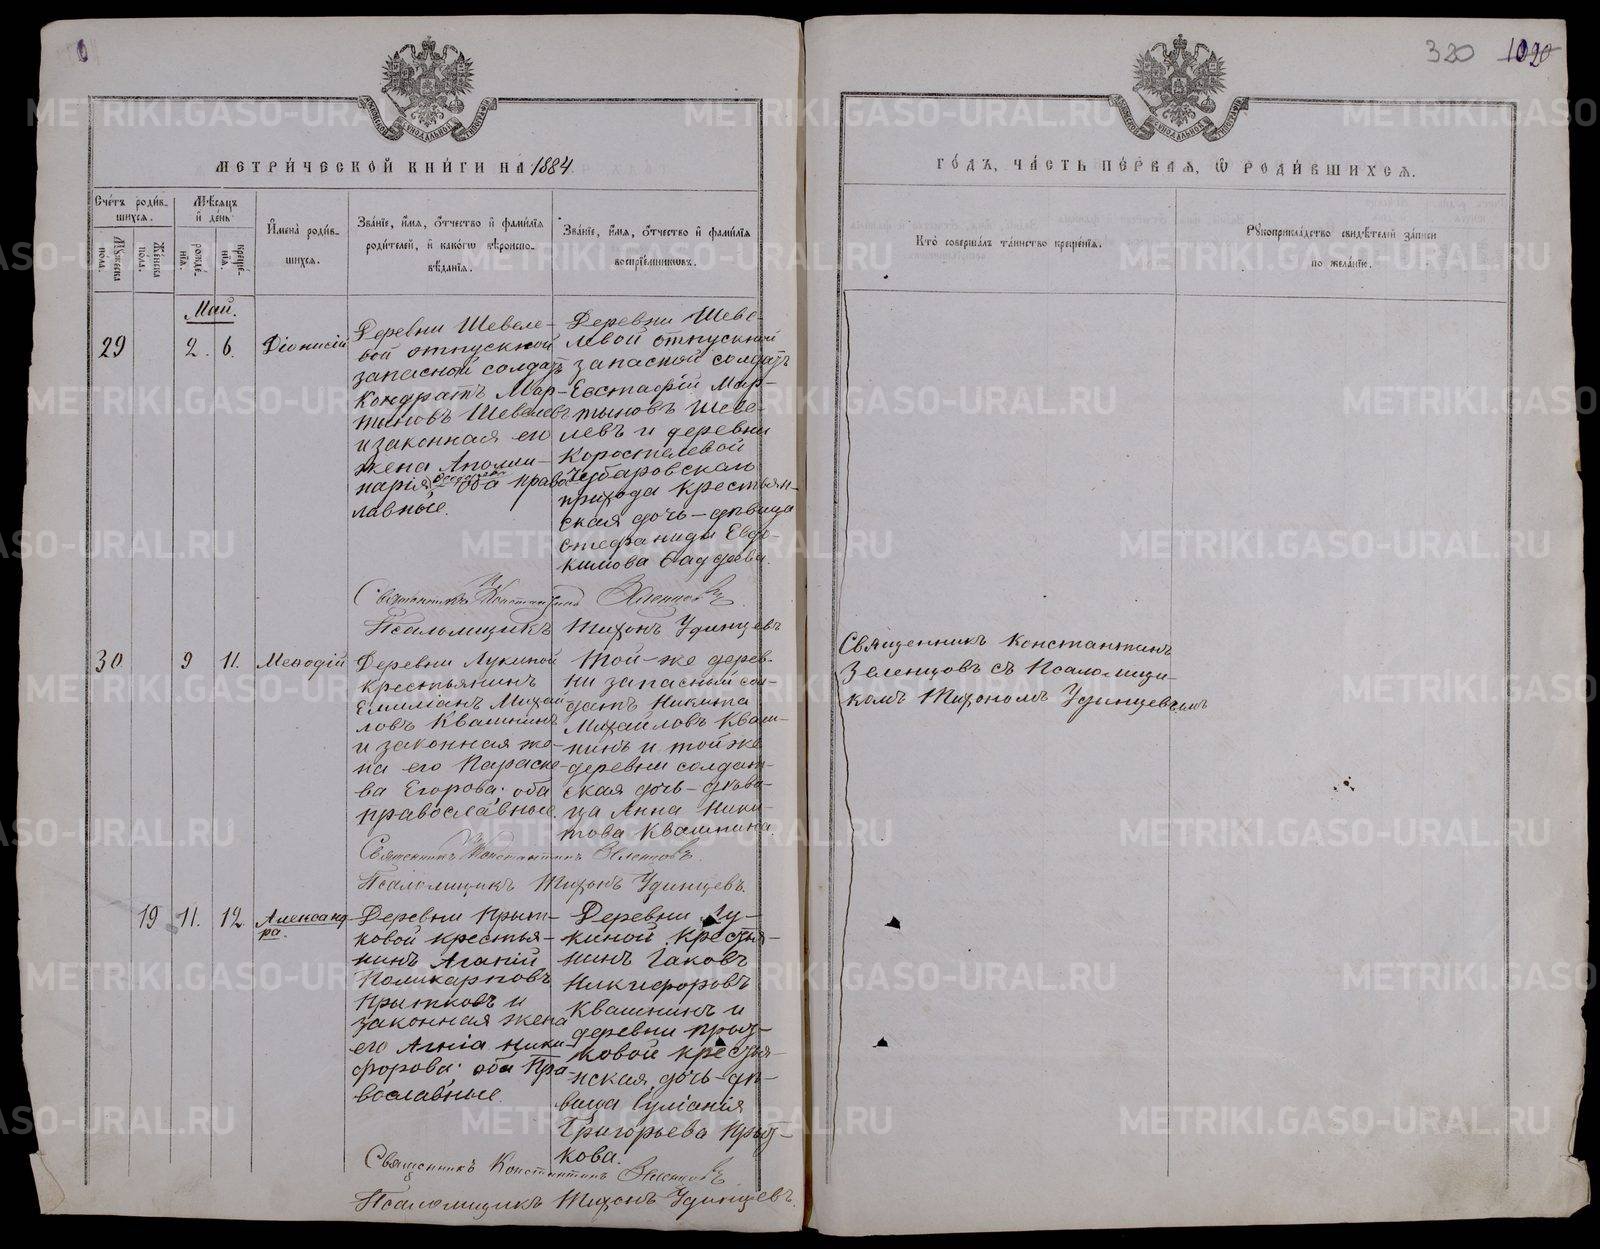 320 1020
МЕТРИ́ЧЕСКОЙ КНИ́ГИ НА 1884
ГО́ДЪ, ЧА́СТЬ ПЕ́РВАЯ, Ѡ РОДИ́ВШИХСЯ.
Сче́тъ роди́в-
шихся.
Му́жеска по́ла.
Же́нска по́ла.
Мѣ́сяцъ
и де́нь
рожде́-
нія.
креще́-
нія.
И́мена роди́в-
шихся.
Зва́ніе, и́мя, о́тчество и фами́лія
роди́телей, и како́гѡ вѣроиспо-
вѣ́данія.
Зва́ніе, и́мя, о́тчество и фами́лія
воспріе́мникѡвъ.
Кто́ соверша́лъ та́инство креще́нія.
Рꙋкоприкла́дство свидѣ́телей за́писи
по жела́нію.
Май.
29
2. 6.
Діонисій
Деревни Шевеле-
вой отпускной
запасной солдатъ
Кондратъ Мар-
тыновъ Шевелевъ
и законная его
жена Аполли-
нарія оба право
лавные.
Деревни Шеве-
левой отпускной
запасной солдатъ
Евстафій Мар-
тыновъ Шеве-
левъ и деревни
Коростелевой
Чубаровскаго
прихода крестьян-
ская дочь - дѣвица
Стефанида Евдо-
кимова
Священникъ Константинъ Зеленцовъ
Псаломщикъ Тихонъ Удинцевъ
30
9 11.
Меѳодій
Деревни Лукиной
крестьянинъ
Емиліанъ Михай
ловъ Квашнинъ
и законная же-
на его Параске-
ва Егорова. оба
православные.
Той-же дерев-
ни запасный сол-
датъ Никита
Михайловъ Кваш-
нинъ и той же
деревни солдат-
ская дочь - дѣви-
ца Анна Ники-
това Квашнина.
Священникъ Константинъ
Зеленцовъ съ Псаломщи-
комъ Тихономъ Удинцевымъ
Священникъ Константинъ Зеленцовъ.
Псаломщикъ Тихонъ Удинцевъ.
19 11. 12.
Александ-
ра.
Деревни Прыт-
ковой крестья-
нинъ Агапій
Поликарповъ
Прытковъ и
законная жена
его Агнія Ники-
форова. оба Пра-
вославные.
Деревни Лу-
киной крестья-
нинъ Іаковъ
Никифоровъ
Квашнинъ и
деревни прыт-
ковой крестья-
нская дочь - дѣ-
вица Іуліанія
Григорьева Прыт-
кова.
Священникъ Константинъ Зеленцовъ
Псаломщикъ Тихонъ Удинцевъ.
METRIKI.GASO-URAL.RU